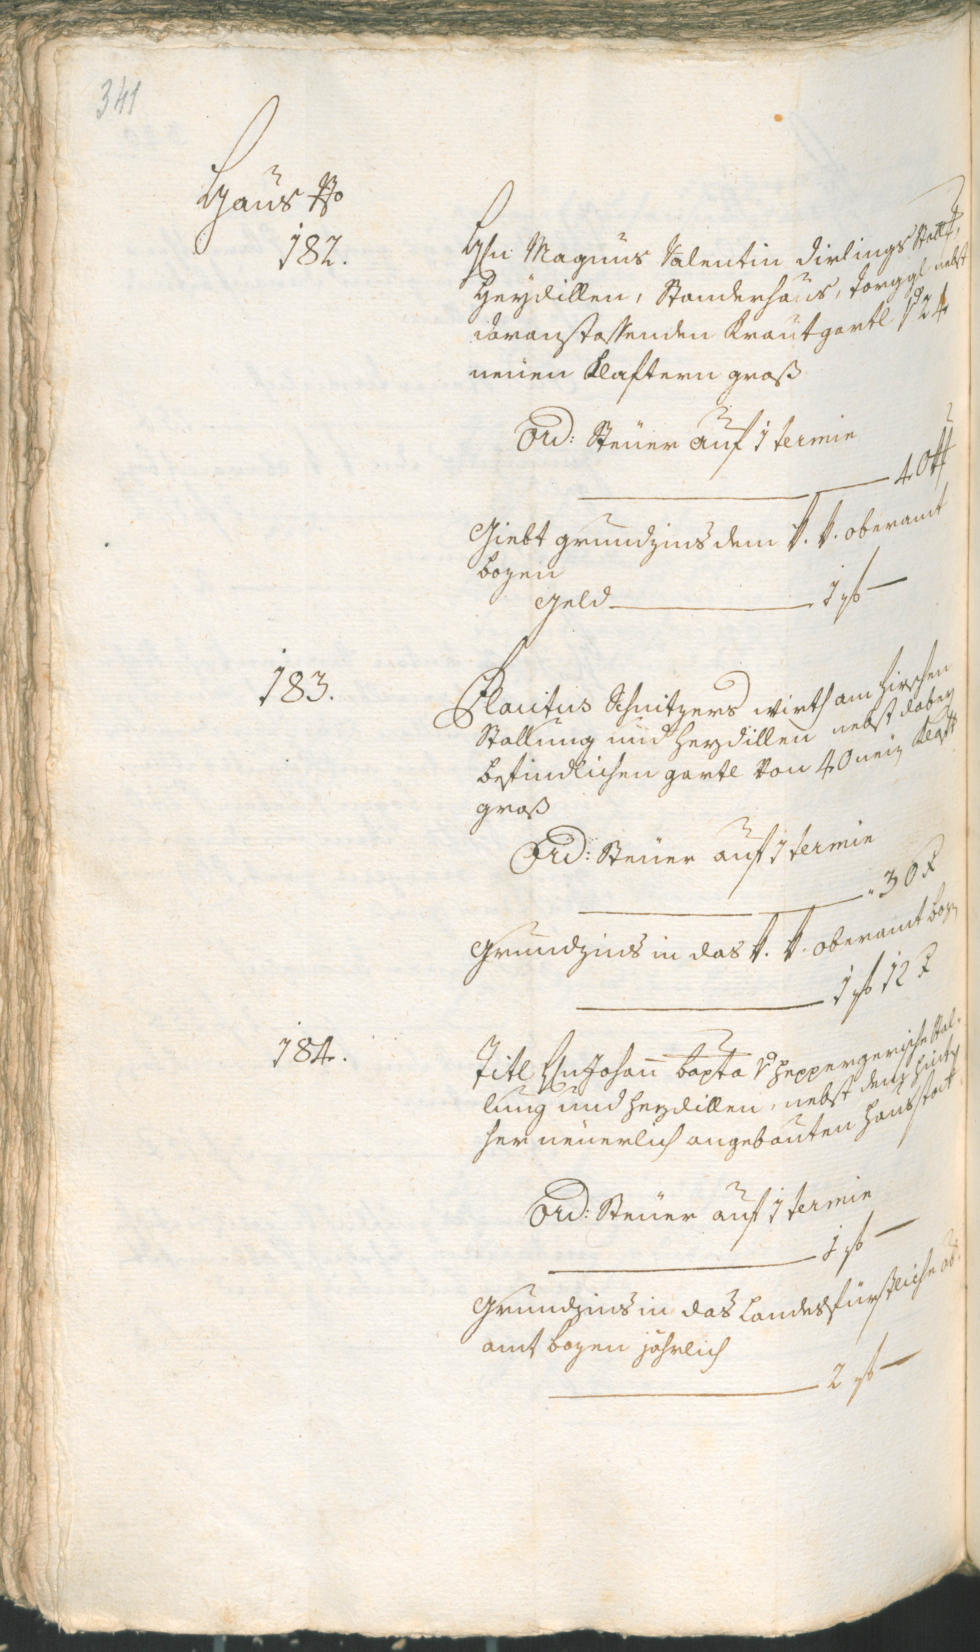 341
Haus No
182.
Hn Magnus Valentin Dirlings Stall,
Heÿdillen, Standerhaus, Torggl nebst
daranstossenden Krautgartl Vo 24
neuen Klaftern groß
Ord: Steuer auf 1 termin
40
Giebt grundzins dem V. V. oberamt
bozen
Geld 1 f —
183.
Placitus Schnitzers wirth am Hirschen
Stallung und Heÿdillen nebst dabeÿ
befindlichen gartl Von 40 neuen Klaft
groß
Ord: Steuer auf 1 termin
30 x
Grundzins in das V. V. oberamt boz
1 f 12 x
184.
Titl Hn Johan bapta V Heppergerische Stal-
lung und Heÿdillen, nebst dem hint
her neuerlich angebauten Hausstatt
Ord: Steuer auf 1 termin
1 f —
Grundzins in das Landesfürstliche ob:
amt bozen jährlich
2 f —